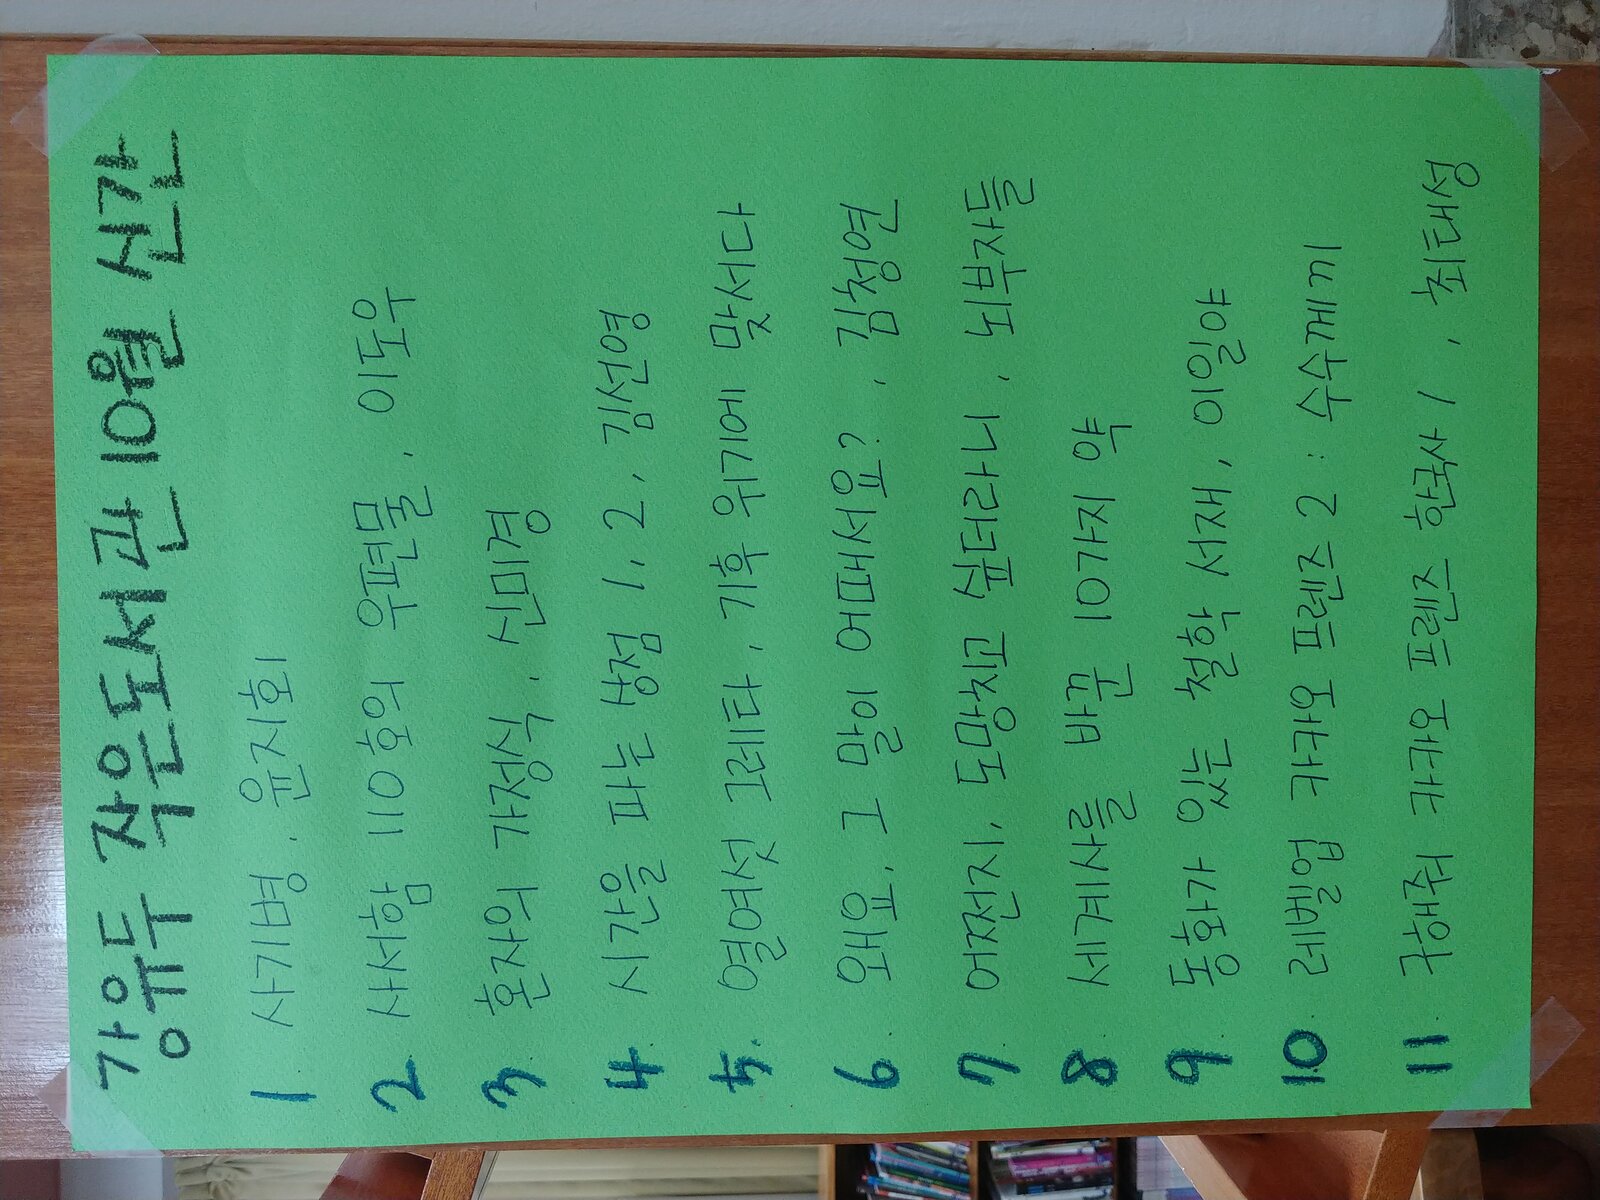 강유두 작은도서관 10월 신간
1. 사기병. 윤지회
2. 사서함 110호의 우편물, 이도우
3. 혼자의 가정식, 신미경
4. 시간을 파는 상점 1, 2, 김선영
5. 열여섯 그레타, 기후 위기에 맞서다
6. 왜요, 그 말이 어때서요?, 김청연
7. 어쩐지, 도망치고 싶더라니, 뇌부자들
8. 세계사를 바꾼 10가지 약
9. 동화가 있는 철학 서재, 이일야
10. 레벨업 카카오 프렌즈 2 : 수수께끼
11. 구해줘 카카오 프렌즈 한국사 1, 최태성